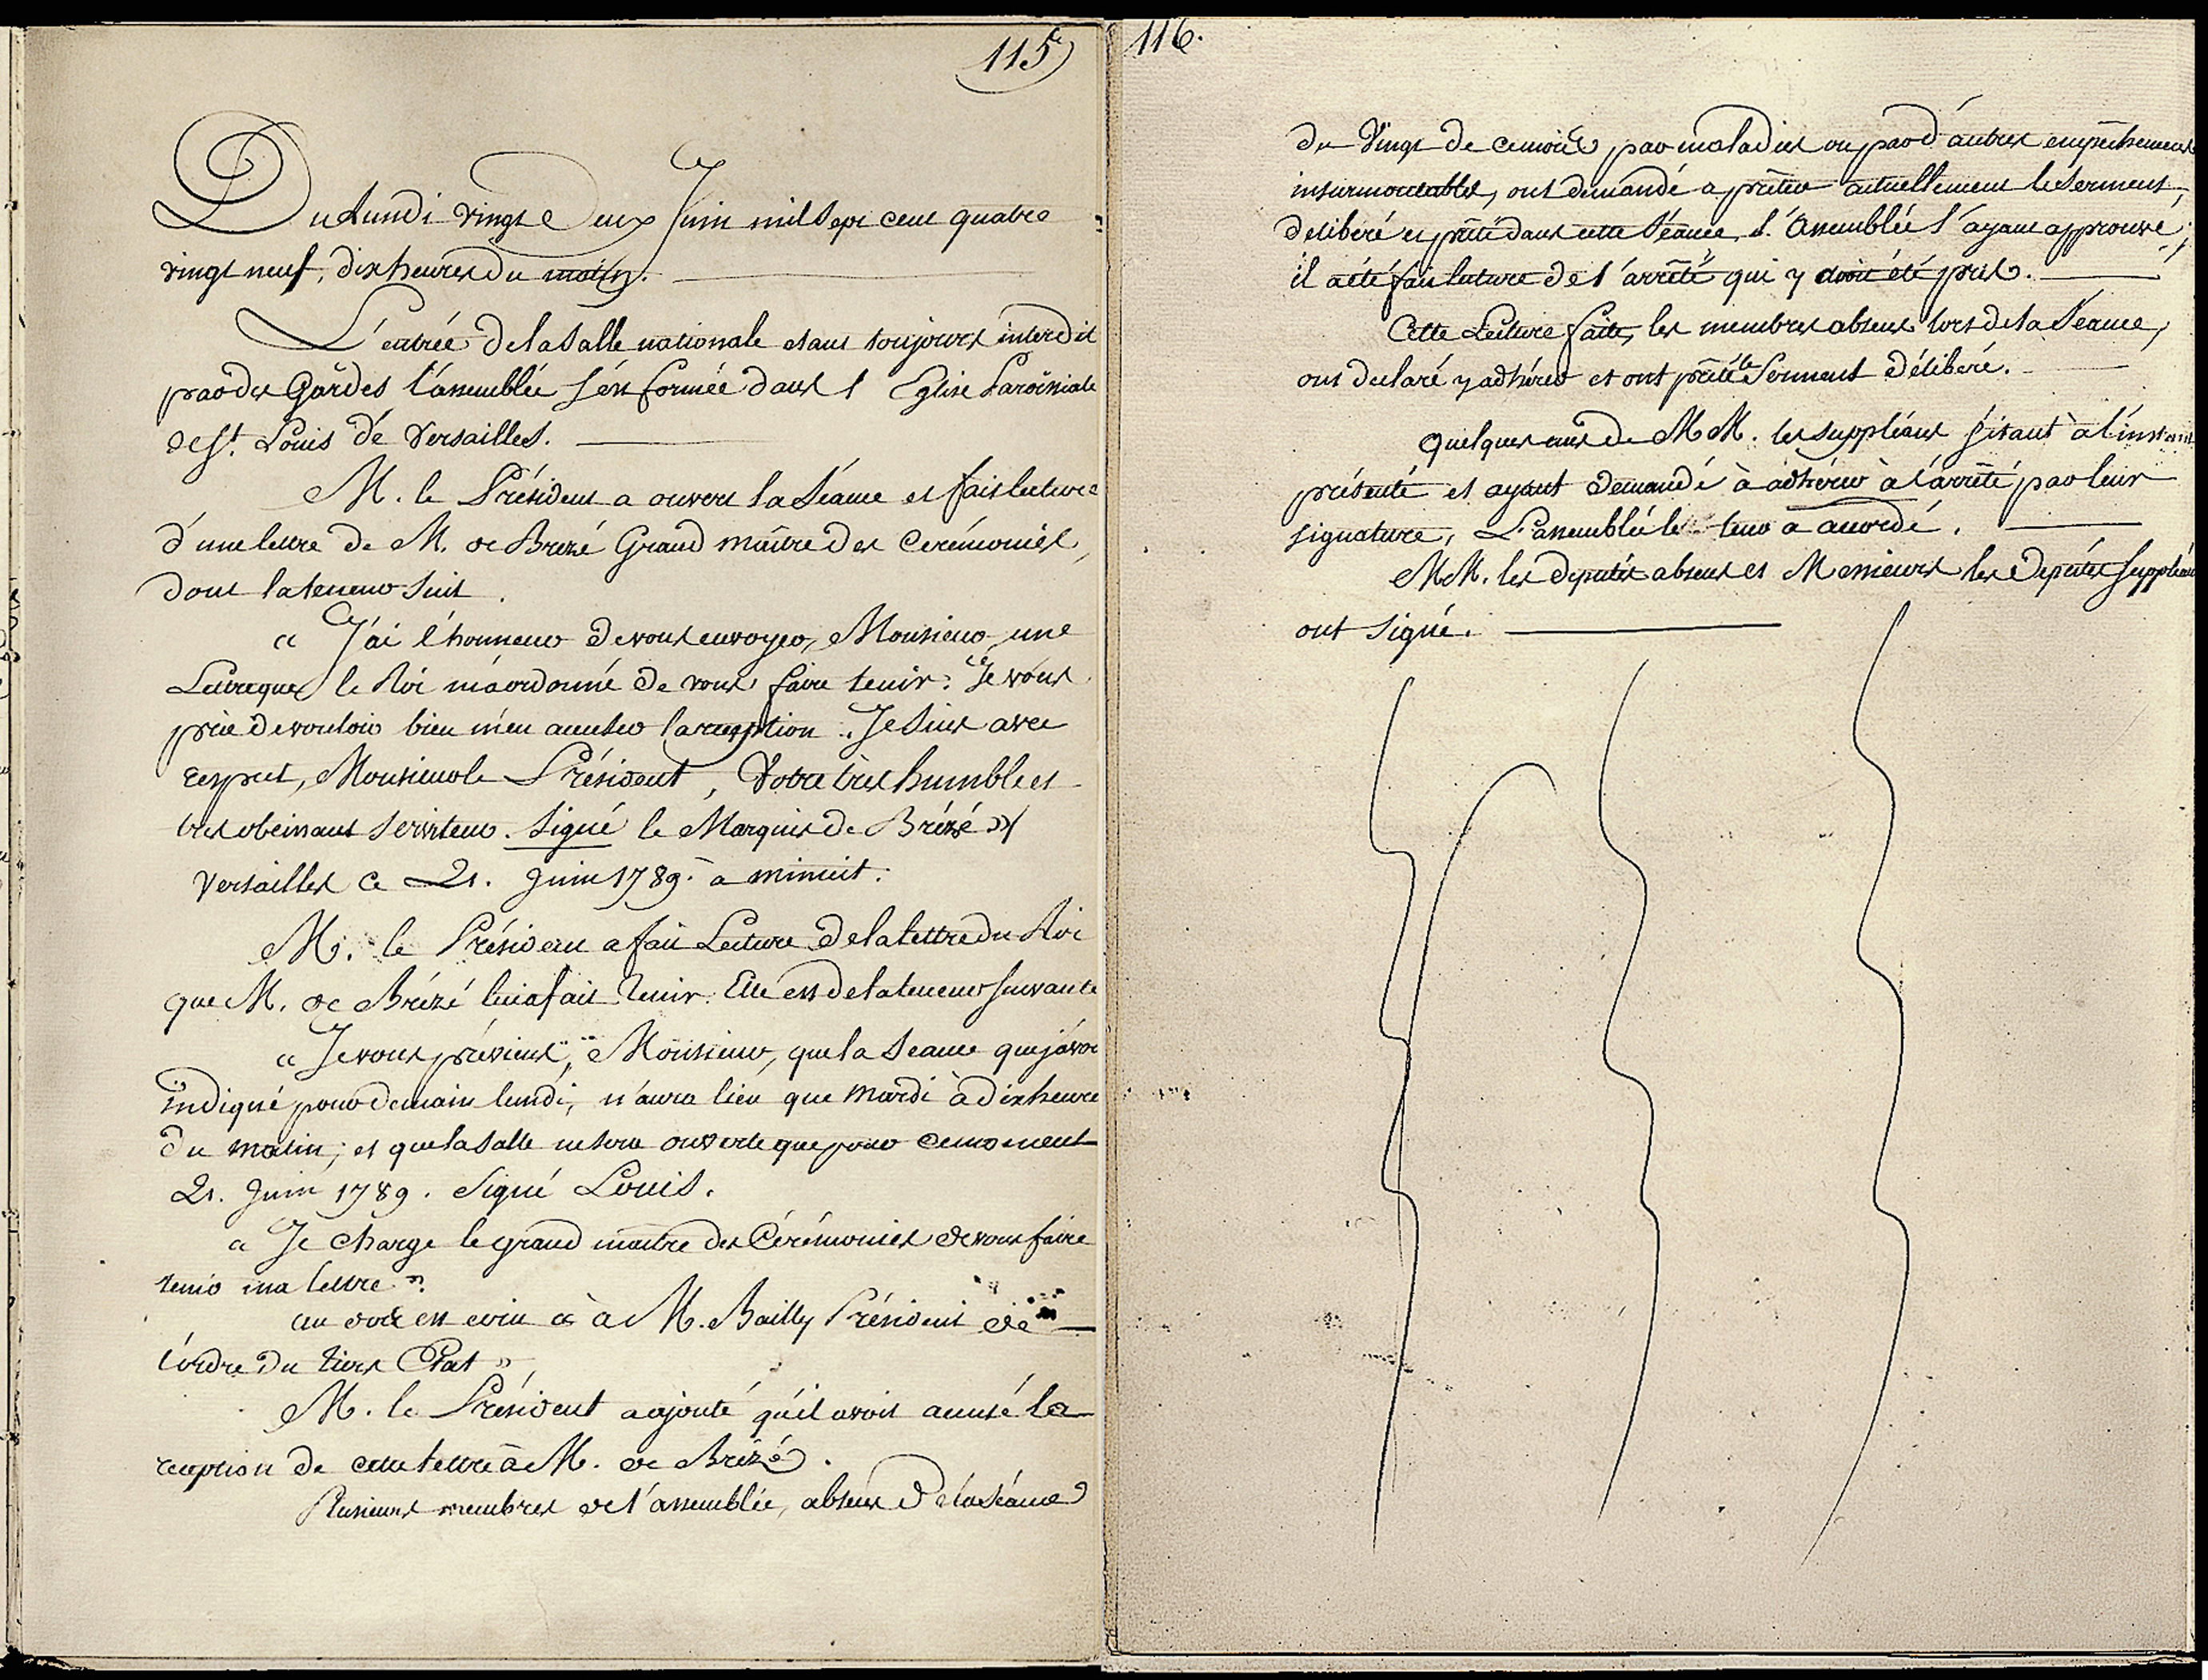 115
Du Lundi vingt Deux Juin mil Sept cent quatre
vingt neuf, dix heures du matin.
L'entrée de la Salle nationale etant toujours interdit
par des Gardes l'assemblée s'est formée dans l'Eglise Paroissiale
de St. Louis de Versailles.
M. le Président a ouvert la Séance et fait lecture
d'une lettre de M. de Brezé Grand maître des Cerémonies,
dont la teneur suit.
« J'ai l'honneur de vous envoyer, Monsieur, une
Lettre que le Roi m'a ordonné de vous faire tenir. Je vous
prie de vouloir bien m'en accuser la reception. Je suis avec
respect, Monsieur le Président, Votre très humble et
tres obeissant serviteur. Signé le Marquis de Brézé »
Versailles ce 21. Juin 1789. à minuit.
M. le Président a fait Lecture de la lettre du Roi
que M. de Brézé lui a fait tenir. Elle est de la teneur suivante
« Je vous préviens, Monsieur, que la Seance que j'avoi
indiqué pour demain lundi, n'aura lieu que Mardi à dix heure
du matin; et que la Salle ne sera ouverte que pour ce moment
21. Juin 1789. Signé Louis.
« Je charge le grand maitre des Cérémonies de vous faire
tenir ma lettre ».
au dos est écrit « à M. Bailly Président de
l'ordre du tiers Etat »
M. le Président a ajouté qu'il avoit accusé la
reception de cette lettre à M. de Brézé.
Plusieurs membres de l'assemblée, absens de la séance
116.
du Vingt de ce mois par maladies ou par d'autres empêchemens
insurmontables, ont demandé a prêter actuellement le Serment,
deliberé et prêté dans cette Séance, l'Assemblée l'ayant approuvé,
il a été fait lecture de l'arrêté qui y avoit été pris.
Cette Lecture faite, les membres absens lors de la Séance,
ont declaré y adhérer et ont prêté le Serment délibéré.
Quelques uns de MM. les suppléans s'etant à l'instant
présenté et ayant demandé à adhérer à l'arrêté par leur
signature, L'assemblée le leur a accordé.
MM. les députés absens et Messieurs les Députés suppléans
ont signé.